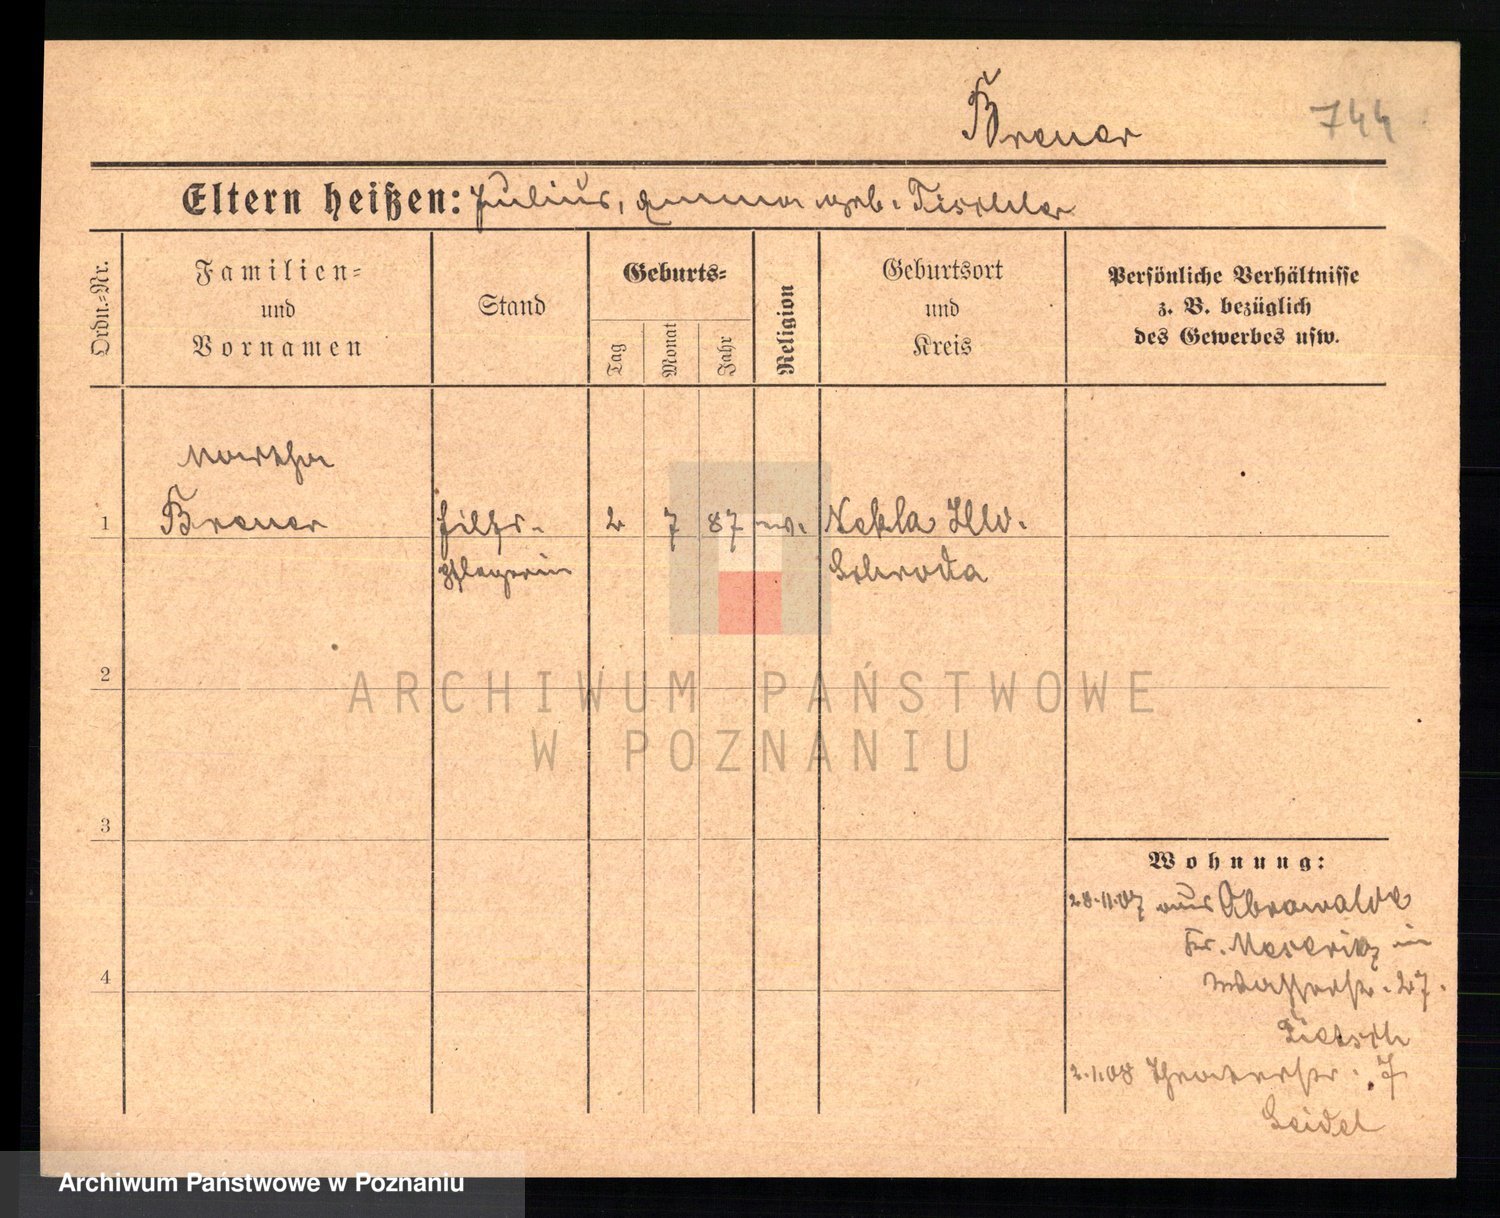 Brauer
744
Eltern heißen: Julius, Emma geb. Tischler
Ordn.-Nr.
Familien-
und
Vornamen
Stand
Geburts-
Tag
Monat
Jahr
Religion
Geburtsort
und
Kreis
Persönliche Verhältnisse
z. B. bezüglich
des Gewerbes usw.
Martha
1 Brauer Hilfs- 2 7 87 ev. Nekla Hld.
pflegerin Schroda
2
3
4
Wohnung:
28.11.07 aus Obrawalde
Kr. Meseritz in
Wasserstr. 27.
Lietsch
2.1.08 Theaterstr. 7
Seidel
ARCHIWUM PAŃSTWOWE
W POZNANIU
Archiwum Państwowe w Poznaniu